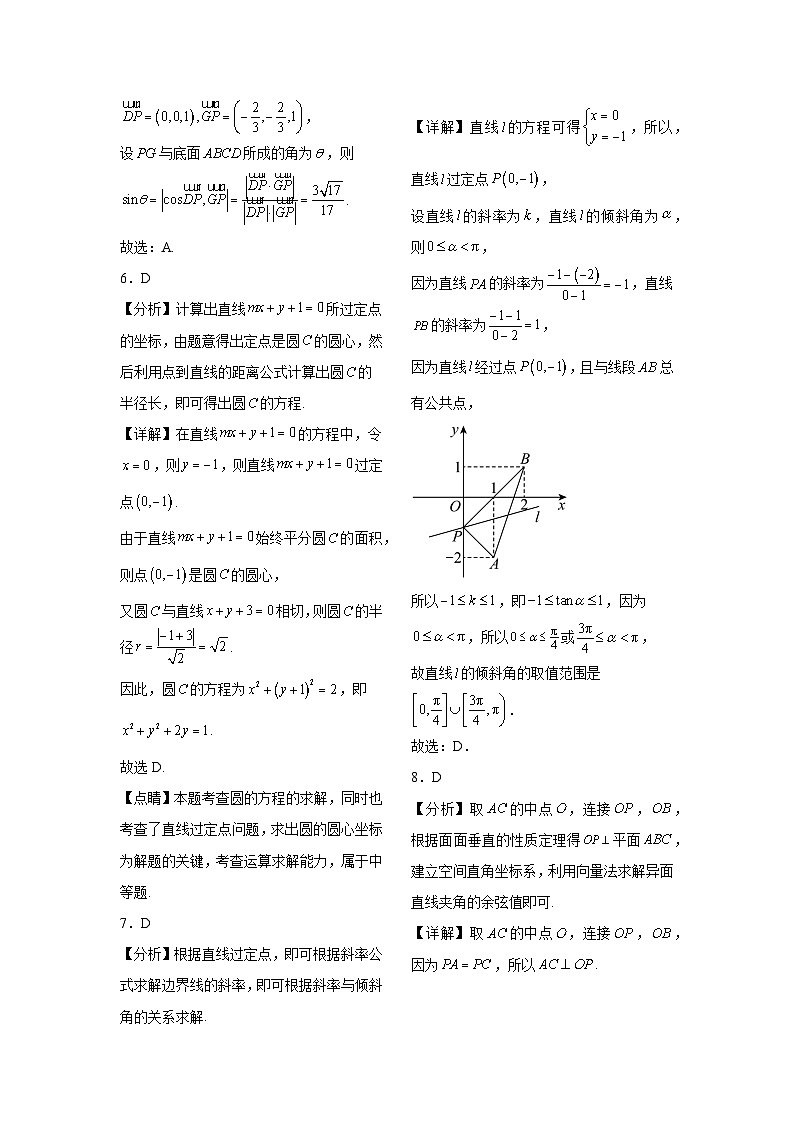 DP = (0,0,1), GP = (-2/3, -2/3, 1),
设PG与底面ABCD所成的角为θ,则
sinθ = |cos DP, GP| = |DP·GP| / |DP|·|GP| = 3√17/17.
故选:A.
6.D
【分析】计算出直线mx+y+1=0所过定点
的坐标,由题意得出定点是圆C的圆心,然
后利用点到直线的距离公式计算出圆C的
半径长,即可得出圆C的方程.
【详解】在直线mx+y+1=0的方程中,令
x=0,则y=-1,则直线mx+y+1=0过定
点(0,-1).
由于直线mx+y+1=0始终平分圆C的面积,
则点(0,-1)是圆C的圆心,
又圆C与直线x+y+3=0相切,则圆C的半
径r = |-1+3|/√2 = √2.
因此,圆C的方程为x²+(y+1)²=2,即
x²+y²+2y=1.
故选D.
【点睛】本题考查圆的方程的求解,同时也
考查了直线过定点问题,求出圆的圆心坐标
为解题的关键,考查运算求解能力,属于中
等题.
7.D
【分析】根据直线过定点,即可根据斜率公
式求解边界线的斜率,即可根据斜率与倾斜
角的关系求解.
【详解】直线l的方程可得{x=0, y=-1,所以,
直线l过定点P(0,-1),
设直线l的斜率为k,直线l的倾斜角为α,
则0≤α<π,
因为直线PA的斜率为(-1-(-2))/(0-1) = -1,直线
PB的斜率为(-1-1)/(0-2) = 1,
因为直线l经过点P(0,-1),且与线段AB总
有公共点,
y
B
1
1
O
2
x
l
P
-2
A
所以-1≤k≤1,即-1≤tanα≤1,因为
0≤α<π,所以0≤α≤π/4或3π/4≤α<π,
故直线l的倾斜角的取值范围是
[0, π/4]∪[3π/4, π).
故选:D.
8.D
【分析】取AC的中点O,连接OP,OB,
根据面面垂直的性质定理得OP⊥平面ABC,
建立空间直角坐标系,利用向量法求解异面
直线夹角的余弦值即可.
【详解】取AC的中点O,连接OP,OB,
因为PA=PC,所以AC⊥OP.